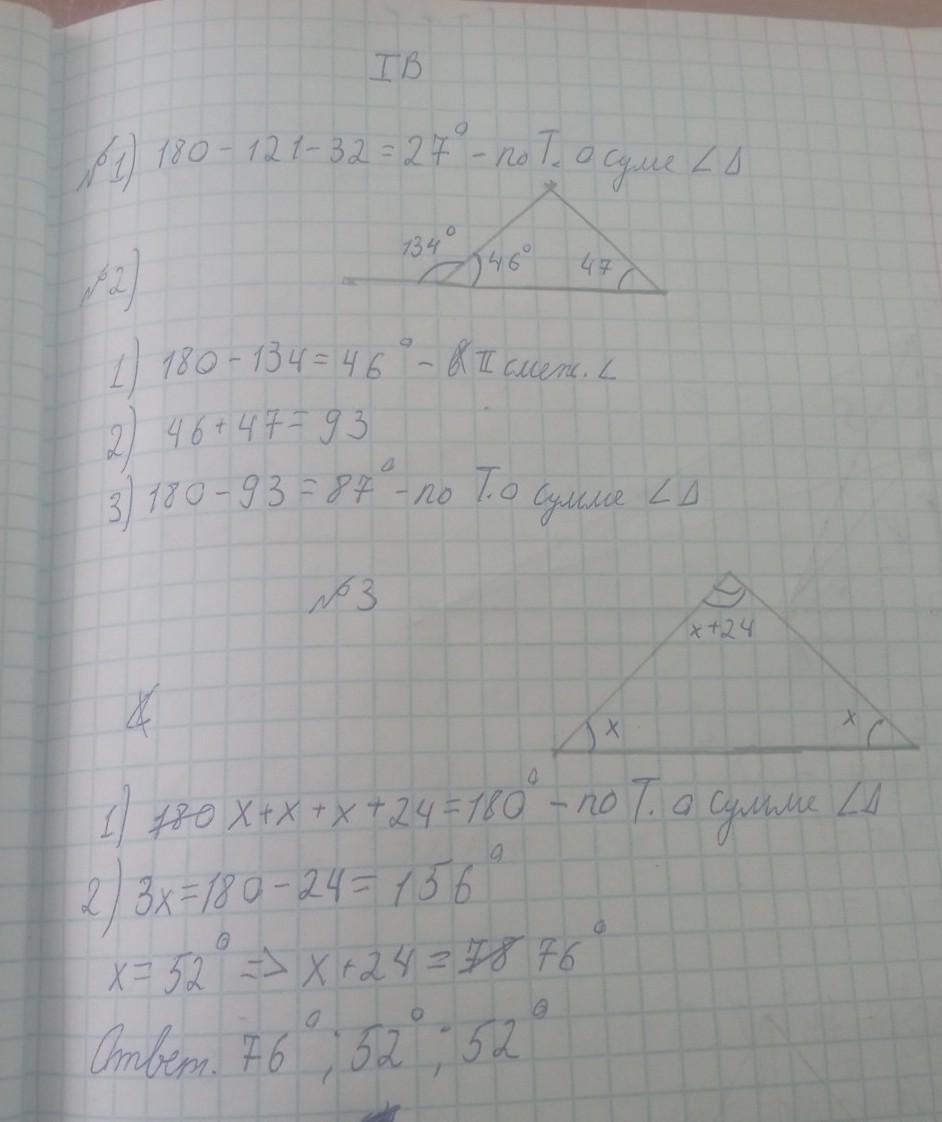 IВ
№1) 180 - 121 - 32 = 27° - по Т. о суме ∠ Δ
134° 46° 47
№2)
1) 180 - 134 = 46° - II смеж. ∠
2) 46 + 47 = 93
3) 180 - 93 = 87° - по Т. о сумме ∠ Δ
№3
x+24
x x
1) 180 x + x + x + 24 = 180° - по Т. о сумме ∠ Δ
2) 3x = 180 - 24 = 156°
x = 52° => x + 24 = 78 76°
Ответ. 76° ; 52° ; 52°